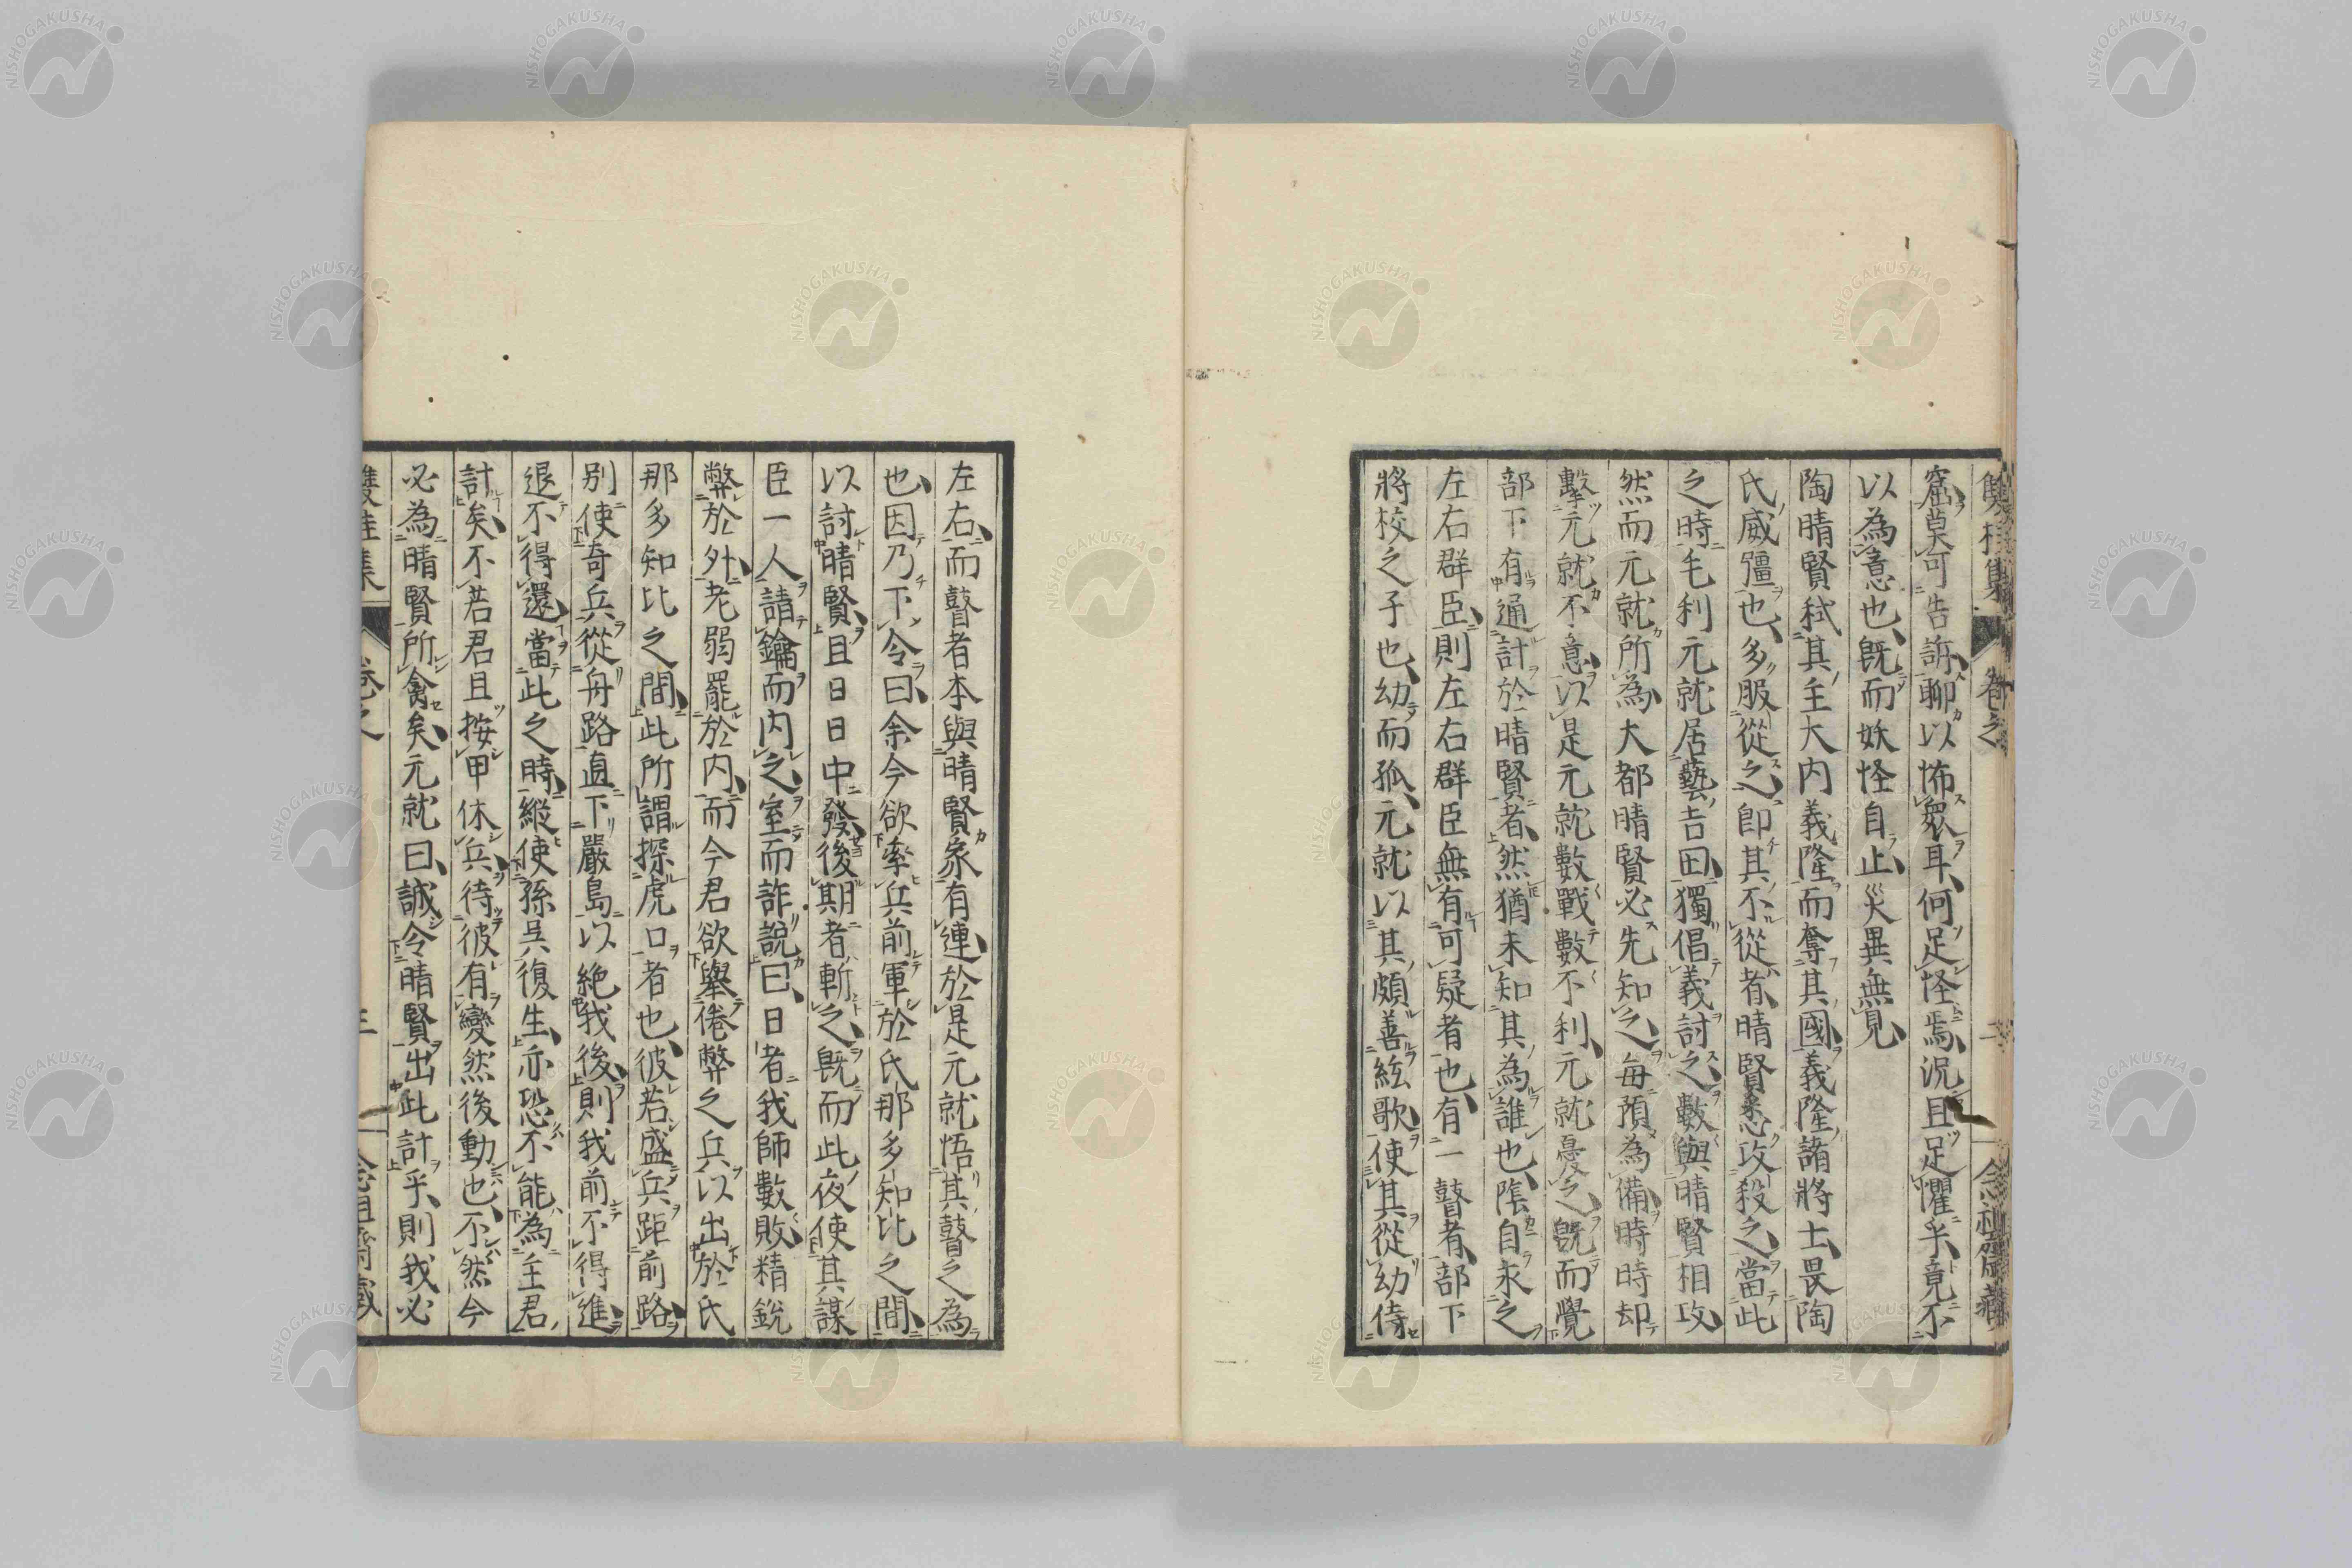 雙桂集 卷之 二 念祖齋藏
窟莫可告訴聊以怖衆耳何足怪焉況且足懼乎竟不
以為意也既而妖怪自止災異無見
陶晴賢弑其主大内義隆而奪其國義隆諸將士畏陶
氏威彊也多服從之即其不從者晴賢悉攻殺之當此
之時毛利元就居藝吉田獨倡義討之數與晴賢相攻
然而元就所為大都晴賢必先知之每預為備時時却
擊元就不意以是元就數戰數不利元就憂之既而覺
部下有通計於晴賢者然猶未知其為誰也陰自求之
左右群臣則左右群臣無有可疑者也有一瞽者部下
將校之子也幼而孤元就以其頗善絃歌使其從幼侍
左右而瞽者本與晴賢家有連於是元就悟其瞽之為
也因乃下令曰余今欲率兵前軍於氏那多知比之間
以討晴賢且日日中發後期者斬之既而此夜使其謀
臣一人請鑰而内之室而詐說曰日者我師數敗精銳
弊於外老弱罷於内而今君欲舉倦弊之兵以出於氏
那多知比之間此所謂探虎口者也彼若盛兵距前路
别使奇兵從舟路直下嚴島以絶我後則我前不得進
退不得還當此之時縱使孫吳復生亦恐不能為主君
計矣不若君且按甲休兵待彼有變然後動也不然今
必為晴賢所禽矣元就曰誠令晴賢出此計乎則我必
雙桂集 卷之 三 念祖齋藏